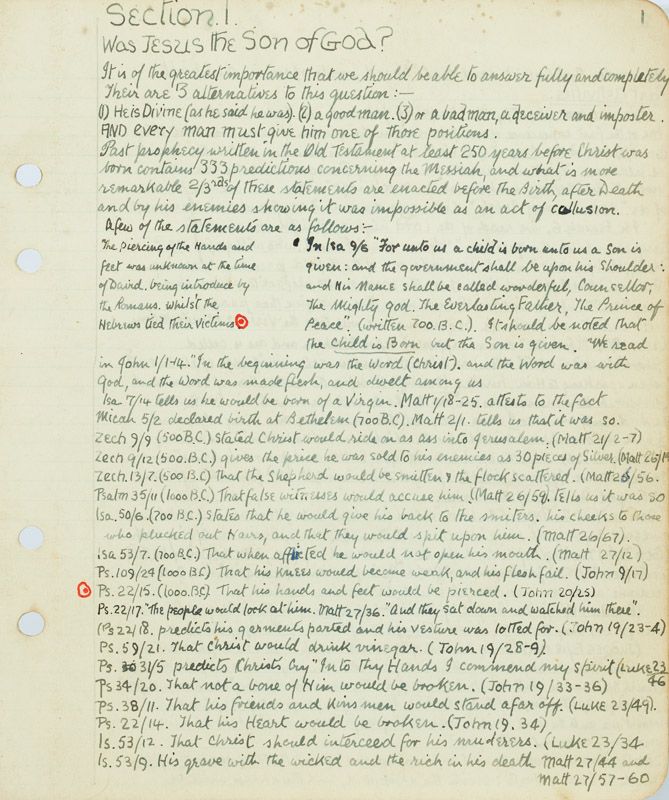 Section.1. 1
Was Jesus the Son of God?
It is of the greatest importance that we should be able to answer fully and completely
Their are 3 alternatives to this question:—
(1) He is Divine (as he said he was). (2) a good man. (3) or a bad man, a deceiver and imposter.
AND every man must give him one of those positions.
Past prophecy written in the Old Testament at least 250 years before Christ was
born contains 333 predictions concerning the Messiah, and what is more
remarkable 2/3rds of these statements are enacted before the Birth, after Death
and by his enemies showing it was impossible as an act of collusion.
A few of the statements are as follows:-
The piercing of the Hands and
feet was unknown at the time
of David. being introduce by
the Romans. whilst the
Hebrews tied their victims
In Isa 9/6 "For unto us a child is born unto us a Son is
given: and the government shall be upon his Shoulder:
and His Name shall be called wonderful, Counsellor,
The Mighty God. The Everlasting Father, The Prince of
Peace". (written 700 B.C.). It should be noted that
the Child is Born but the Son is given. "We read
in John 1/1-14. "In the beginning was the Word (Christ). and the Word was with
God, and the Word was made flesh, and dwelt among us
Isa 7/14 tells us he would be born of a Virgin. Matt 1/18-25. attests to the fact
Micah 5/2 declared birth at Bethelem (700 B.C). Matt 2/1. tells us that it was so.
Zech 9/9 (500 B.C) stated Christ would ride on as ass into Jerusalem. (Matt 21/2-7)
Zech 9/12 (500 B.C.) gives the price he was sold to his enemies as 30 pieces of Silver. (Matt 26/
Zech. 13/7. (500 B.C) That the Shepherd would be smitten & the flock scattered. (Matt 26/56.
Psalm 35/11 (1000 B.C.) That false witnesses would accuse him. (Matt 26/59. tells us it was so
Isa. 50/6. (700 B.C.) States that he would give his back to the smiters. his cheeks to those
who plucked out Hairs, and that they would spit upon him. (Matt 26/67).
Isa 53/7. (700 B.C.) That when afflicted he would not open his mouth. (Matt 27/12)
Ps. 109/24 (1000 B.C.) That his knees would become weak, and his flesh fail. (John 9/17)
Ps. 22/15. (1000. B.C.) That his hands and feet would be pierced. (John 20/25)
Ps. 22/17. "The people would look at him. Matt 27/36. "And they sat down and watched him there".
(Ps 22/18. predicts his garments parted and his vesture was lotted for. (John 19/23-4)
Ps. 59/21. That Christ would drink vinegar. (John 19/28-9)
Ps. 31/5 predicts Christs Cry "Into Thy Hands I commend my spirit (Luke 23
46
Ps 34/20. That not a bone of Him would be broken. (John 19/33-36)
Ps. 38/11. That his friends and Kinsmen would stand afar off. (Luke 23/49).
Ps. 22/14. That his Heart would be broken. (John 19. 34)
Is. 53/12. That Christ should interceed for his murderers. (Luke 23/34
Is. 53/9. His grave with the wicked and the rich in his death Matt 27/44 and
Matt 27/57-60